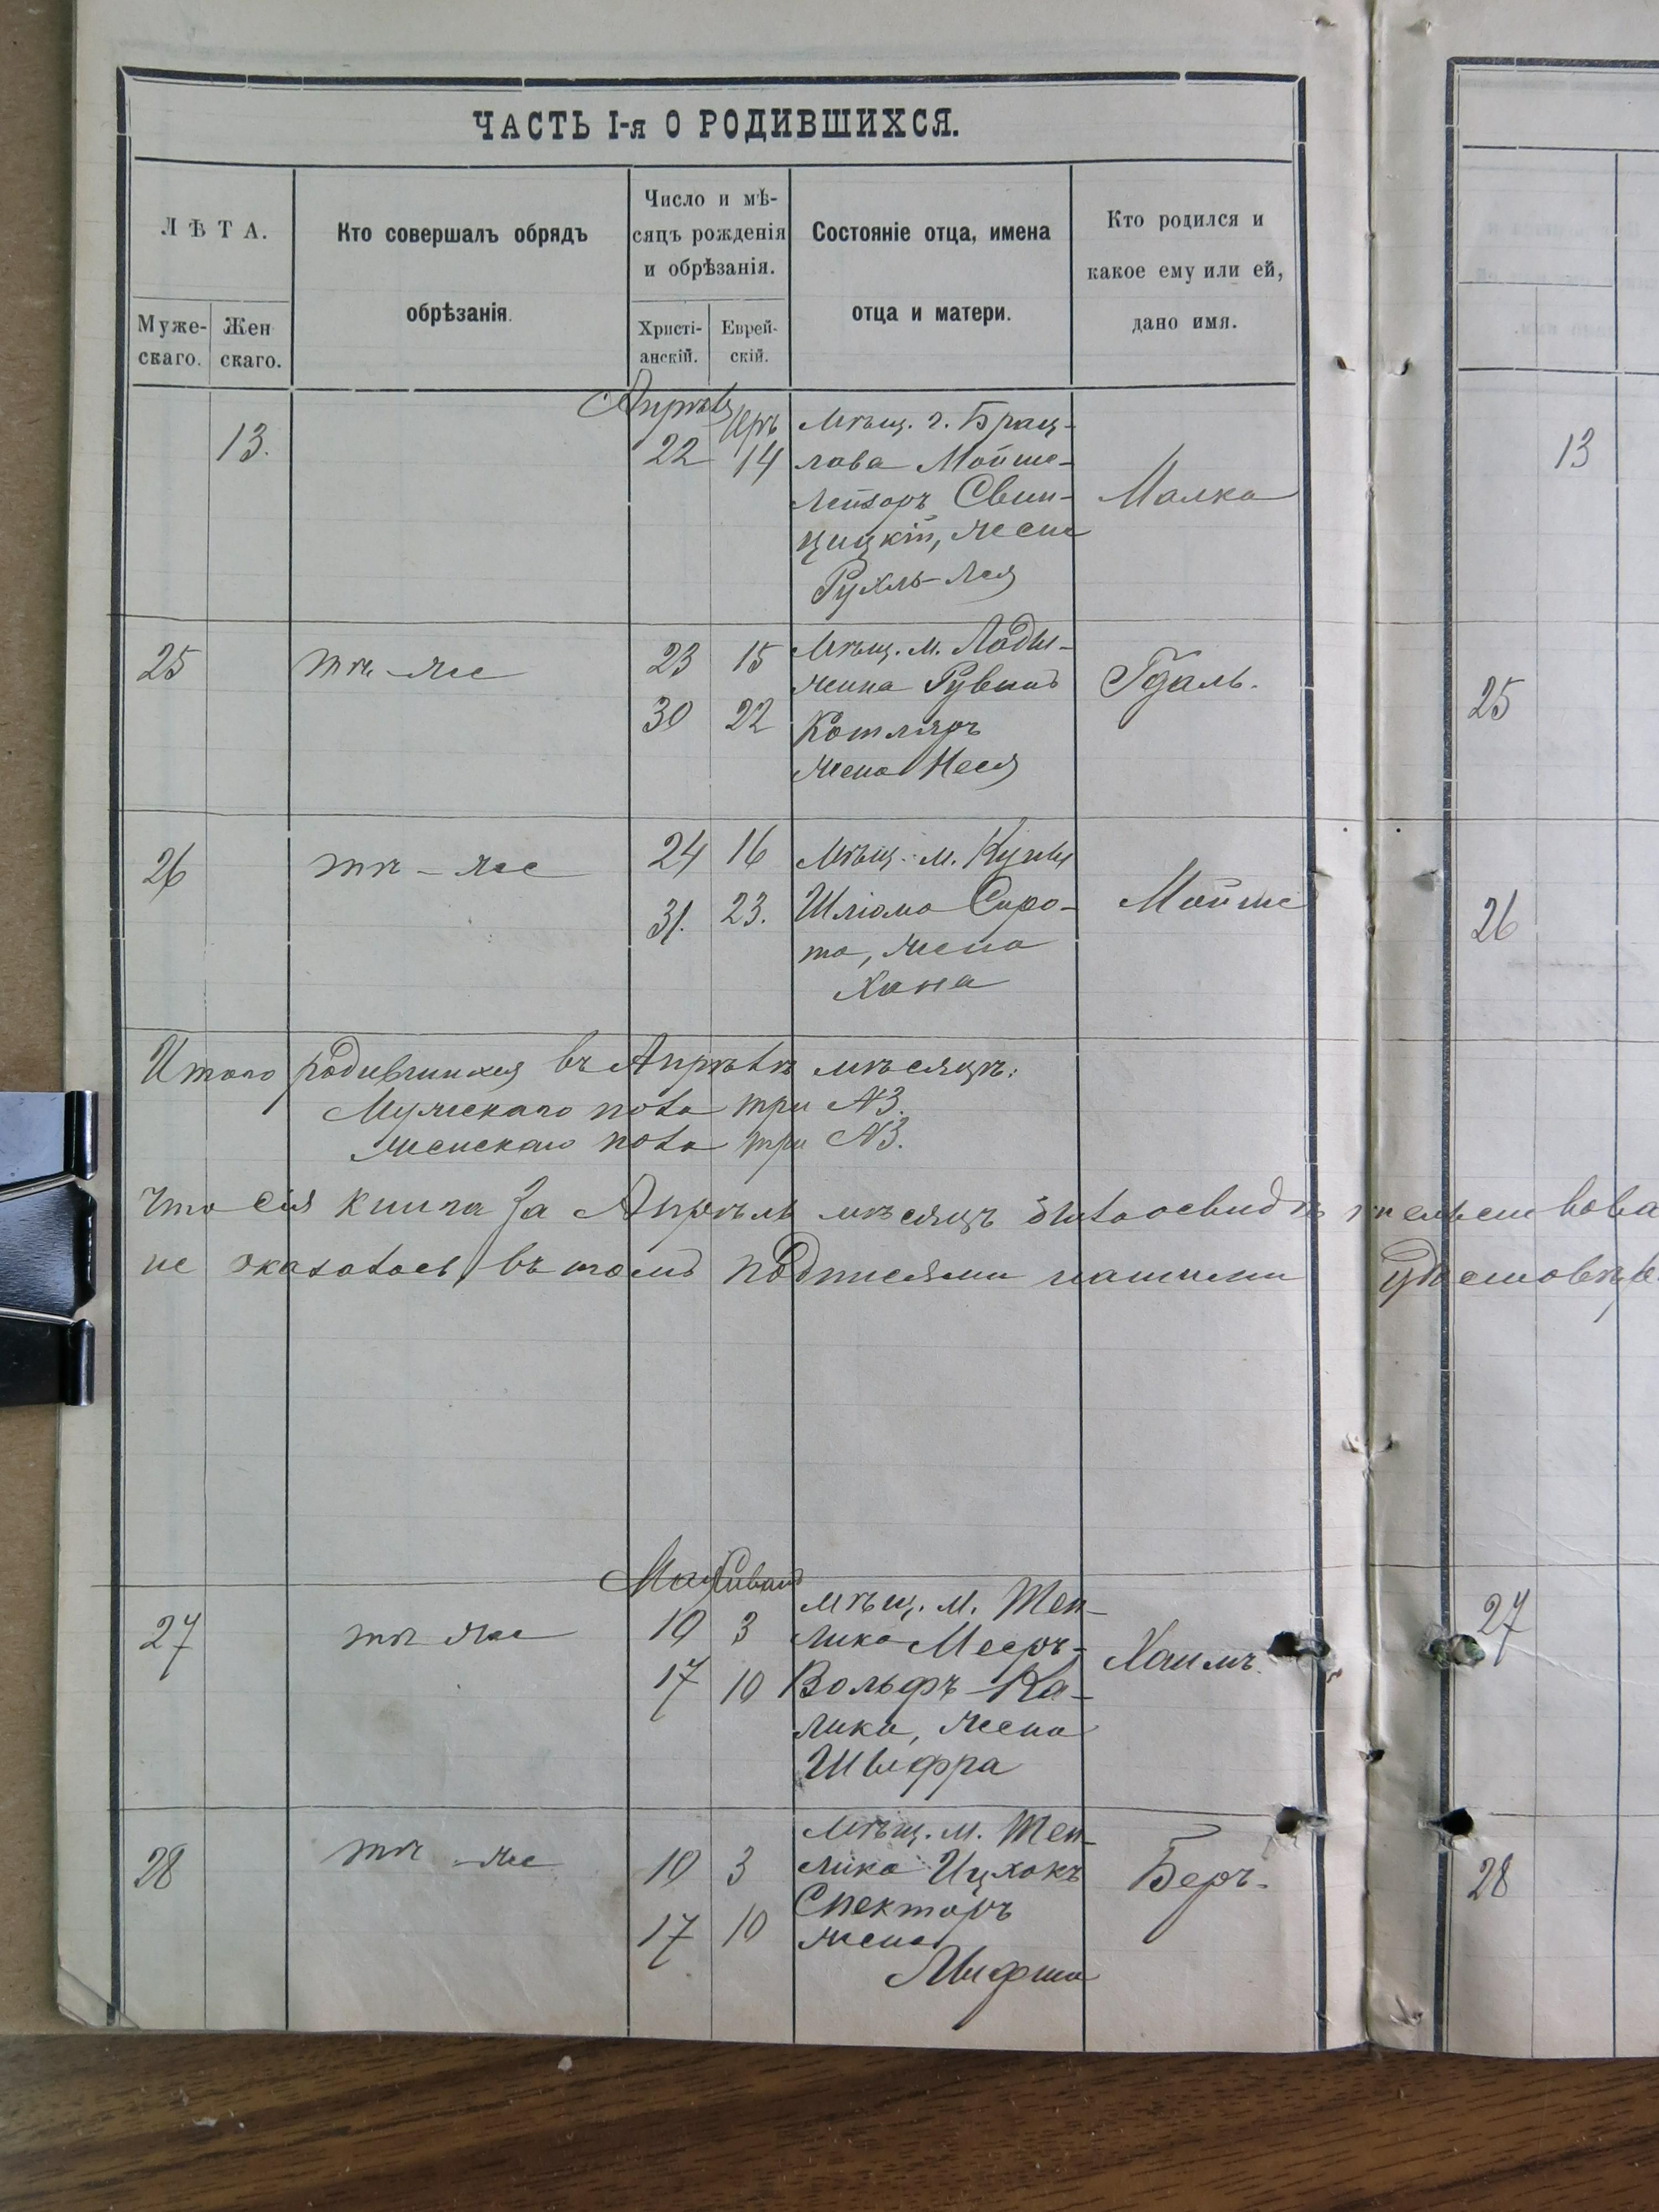 ЧАСТЬ I-я О РОДИВШИХСЯ.
ЛѢТА.
Муже-
скаго.
Жен
скаго.
Кто совершалъ обрядъ
обрѣзанія.
Число и мѣ-
сяцъ рожденія
и обрѣзанія.
Христі-
анскій.
Еврей-
скій.
Состояніе отца, имена
отца и матери.
Кто родился и
какое ему или ей,
дано имя.
13.
Апрѣль
22
Іеръ
14
Мѣщ. г. Брац-
лава Мойше-
Лейзоръ Свин-
цицкій, жена
Рухль-Лея
Малка
13
25
тѣ-же
23
15
30
22
Мѣщ. м. Лады-
жина Рувинъ
Котляръ
жена Неся
Гдаль.
25
26
тѣ-же
24
16
31.
23.
Мѣщ. м. Куны
Шліома Сиро-
та, жена
Хана
Мойше
26
Итого родившихся въ Апрѣлѣ мѣсяцѣ:
Мужскаго пола три №3.
женскаго пола три №3.
Что сія книга за Апрѣль мѣсяцъ была освидѣтельствова
не оказалось, въ томъ подписями нашими удостовѣр
Май
Сиванъ
27
тѣ же
10
3
17
10
мѣщ. м. Теп-
лика Мееръ-
Вольфъ Ка-
лика, жена
Шыфра
Хаимъ.
27
28
тѣ-же
10
3
17
10
Мѣщ. м. Теп-
лика Ицхокъ
Спекторъ
жена
Беръ.
28